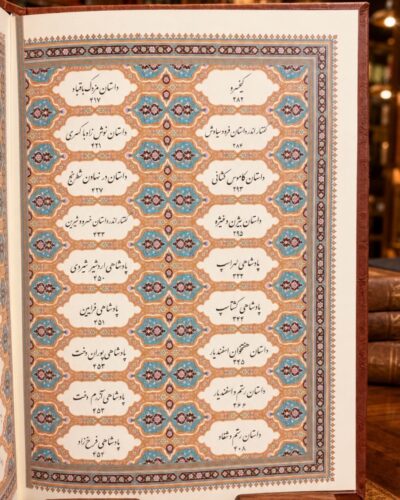 کیخسرو
۲۸۲
گفتار اندر داستان فرود سیاوش
۲۸۴
داستان کاموس کشانی
۲۹۳
داستان بیژن و منیژه
۲۹۵
پادشاهی لهراسپ
۳۳۴
پادشاهی گشتاسپ
۳۴۴
داستان هفتخوان اسفندیار
۳۴۵
داستان رستم و اسفندیار
۳۶۶
داستان رستم و شغاد
۴۰۸
داستان مزدک با قباد
۴۱۷
داستان نوش زاد با کسری
۴۲۱
داستان در نهادن شطرنج
۴۲۷
گفتار اندر داستان خسرو و شیرین
۴۳۳
پادشاهی اردشیر شیروی
۴۵۰
پادشاهی فرایین
۴۵۱
پادشاهی پوران دخت
۴۵۳
پادشاهی آزرم دخت
۴۵۳
پادشاهی فرخ زاد
۴۵۴